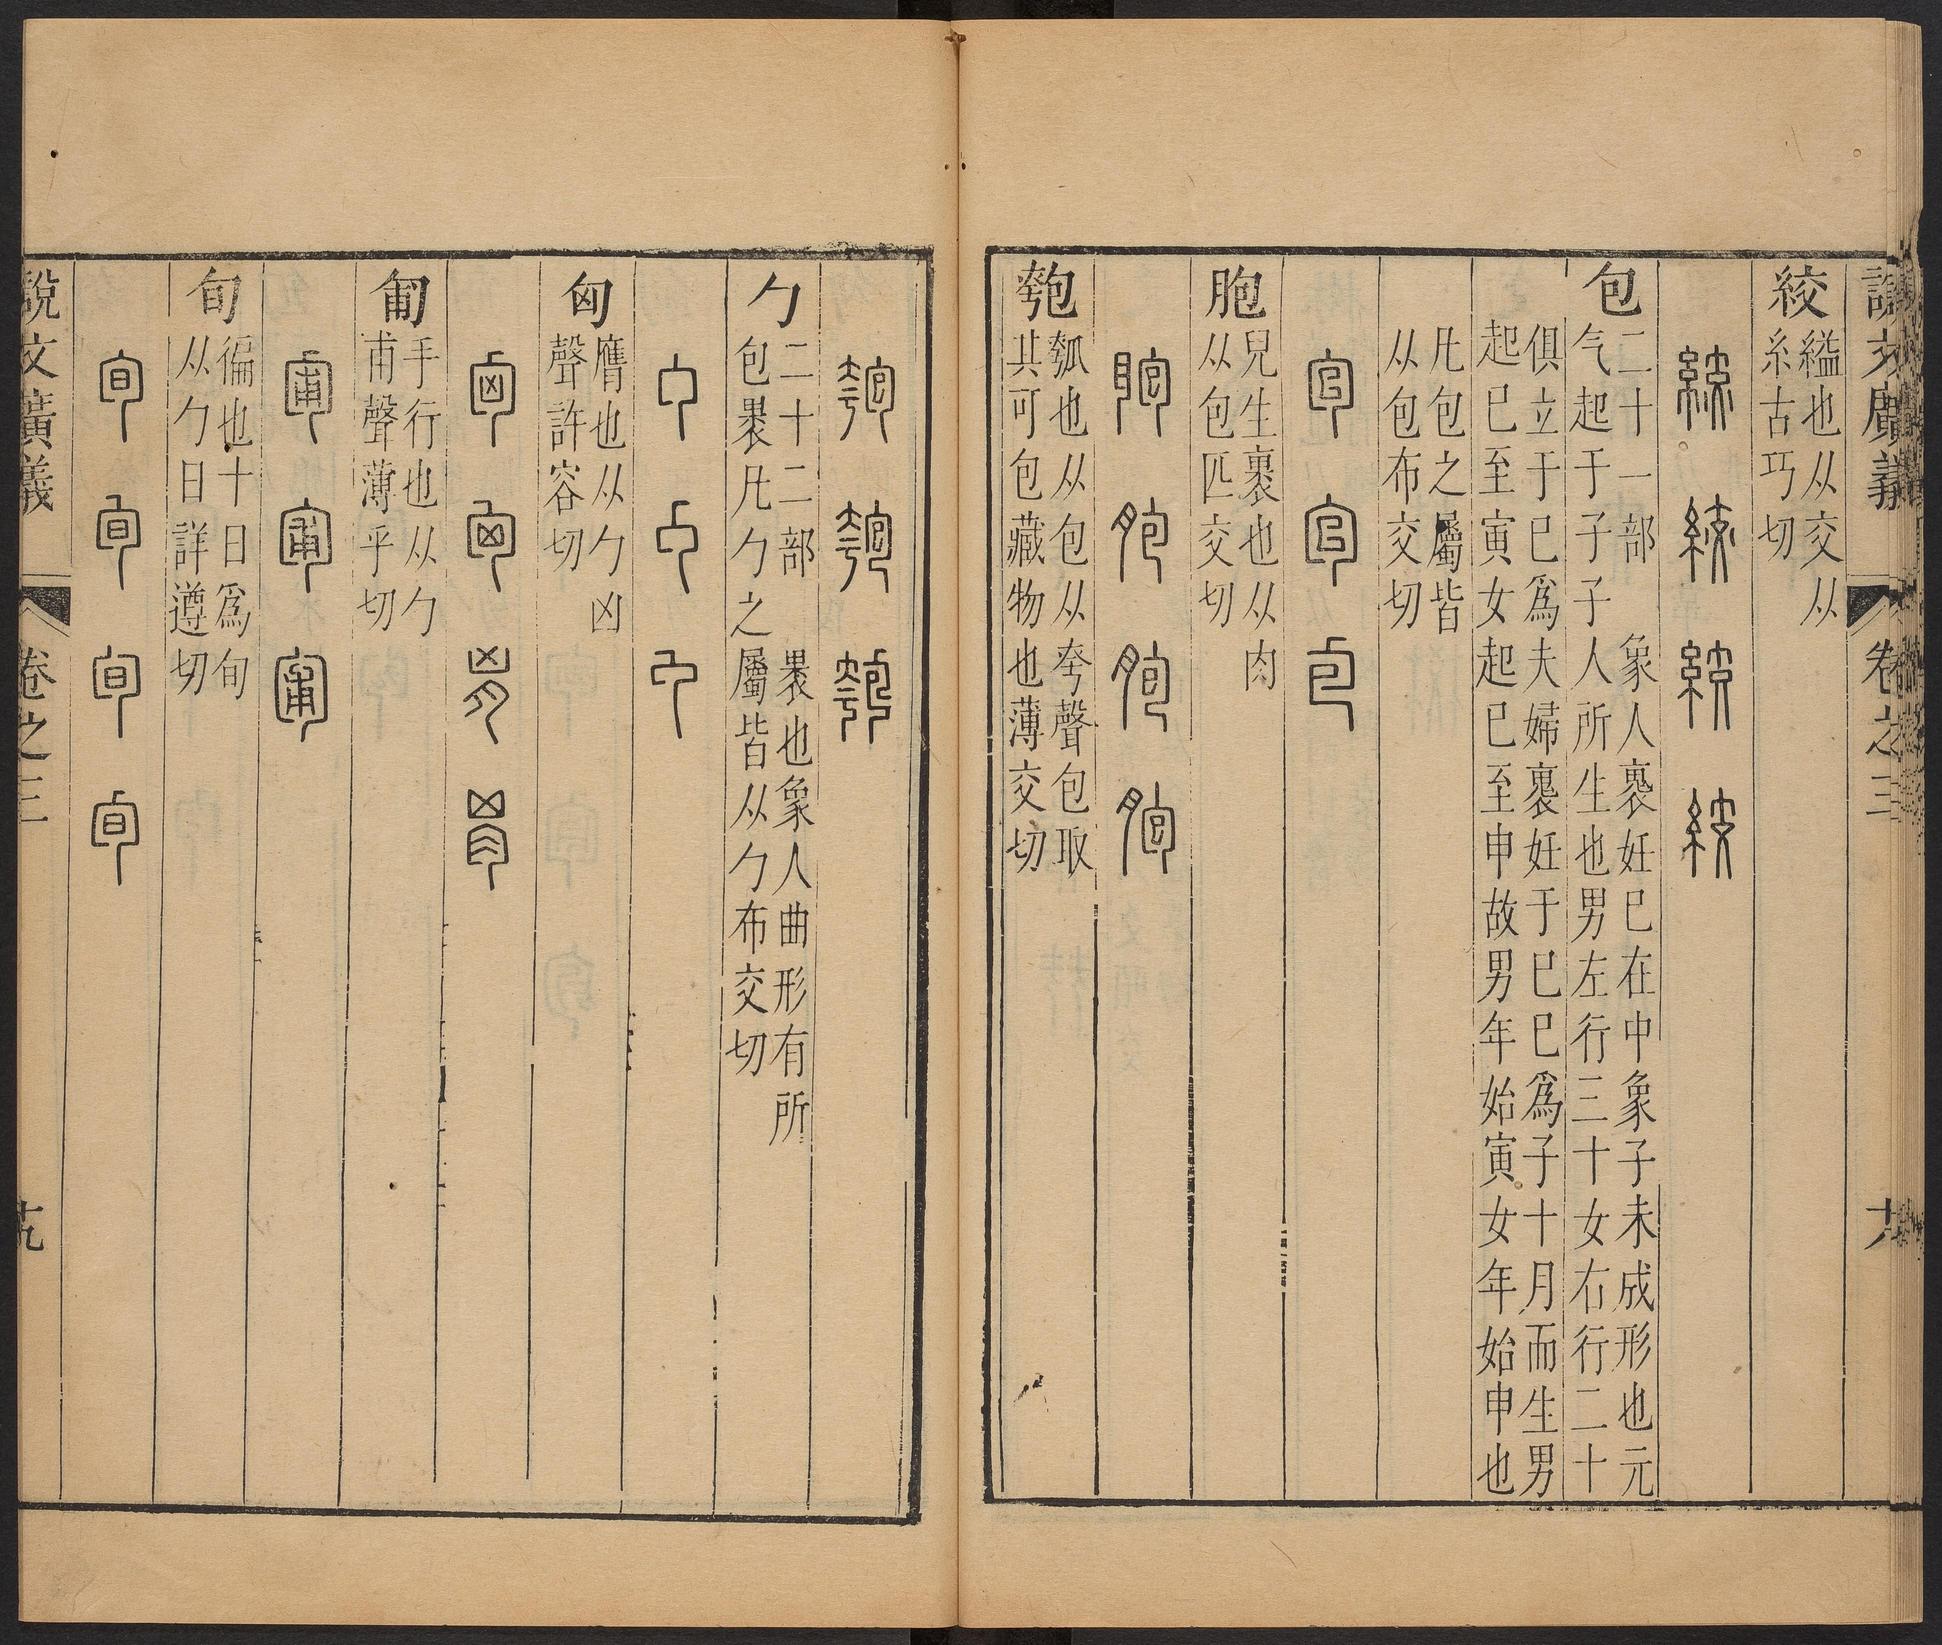 說文廣義 卷之三
絞
縊也从交从
糸古巧切
包
二十一部 象人褢妊巳在中象子未成形也元
气起于子子人所生也男左行三十女右行二十
俱立于巳爲夫婦褢妊于巳巳爲子十月而生男
起巳至寅女起巳至申故男年始寅女年始申也
凡包之屬皆
从包布交切
胞
兒生裹也从肉
从包匹交切
匏
瓠也从包从夸聲包取
其可包藏物也薄交切
勹
二十二部 裹也象人曲形有所
包裹凡勹之屬皆从勹布交切
匈
膺也从勹凶
聲許容切
匍
手行也从勹
甫聲薄乎切
旬
徧也十日爲旬
从勹日詳遵切
說文廣義 卷之三